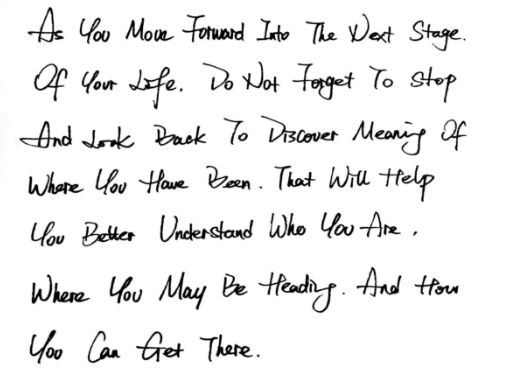 As You Move Forward Into The Next Stage.
Of Your Life. Do Not Forget To Stop
And Look Back To Discover Meaning Of
Where You Have Been. That Will Help
You Better Understand Who You Are.
Where You May Be Heading. And How
You Can Get There.